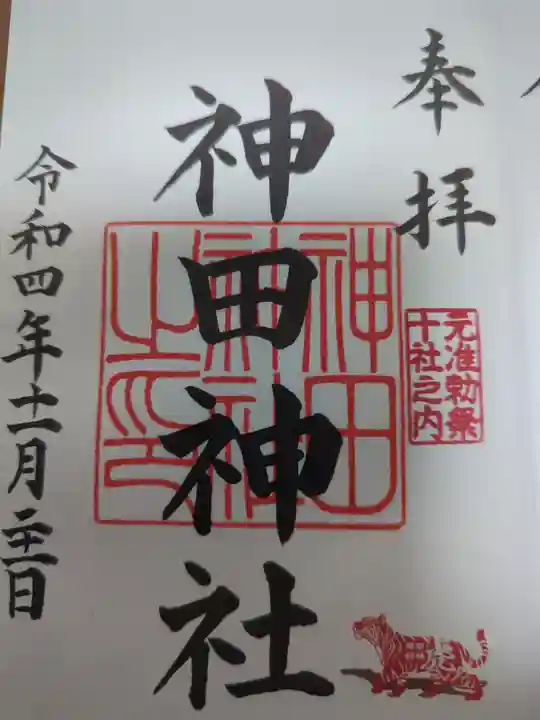 奉拝
元准勅祭
十社之内
神田神社
神田
神社
之印
令和四年十一月二十一日